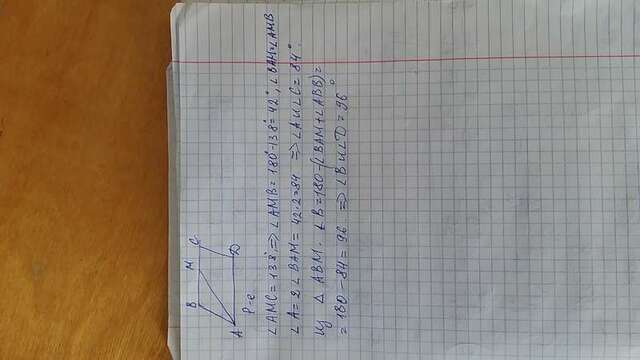 B M C
A D
P-е
∠AMC = 138° ⇒ ∠AMB = 180°-138° = 42°, ∠BAM=∠AMB
∠A = 2 ∠BAM = 42·2=84 ⇒ ∠A и ∠C = 84°.
Из △ ABM. ∠B=180-(∠BAM+∠ABB)=
= 180-84 = 96 ⇒ ∠B и ∠D = 96°